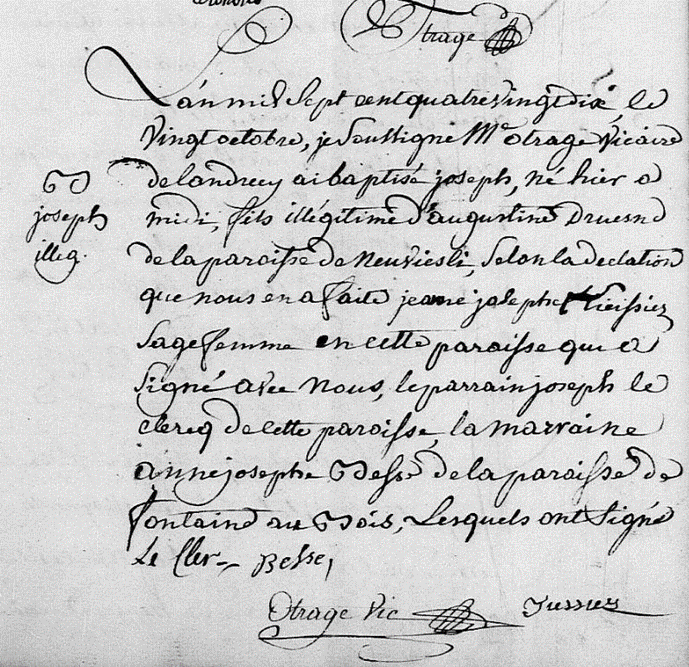 Otrage
L'an mil Sept cent quatre vingt dix, le
vingt octobre, je Soussigné Me otrage vicaire
de landrecy ai baptisé joseph, né hier a
midi, fils illégitime d'augustine Druesne
B
joseph
illeg.
de la paroisse de Neuviesli, Selon la declation
que nous en a faite jeanne josephe
Sage femme en cette paroisse qui a
Signé avec Nous, le parrain joseph le
clercq de cette paroisse, la marraine
anne josephe Besse de la paroisse de
fontaine au Bois, Lesquels ont Signé
Le Cler Besse,
Otrage Vic